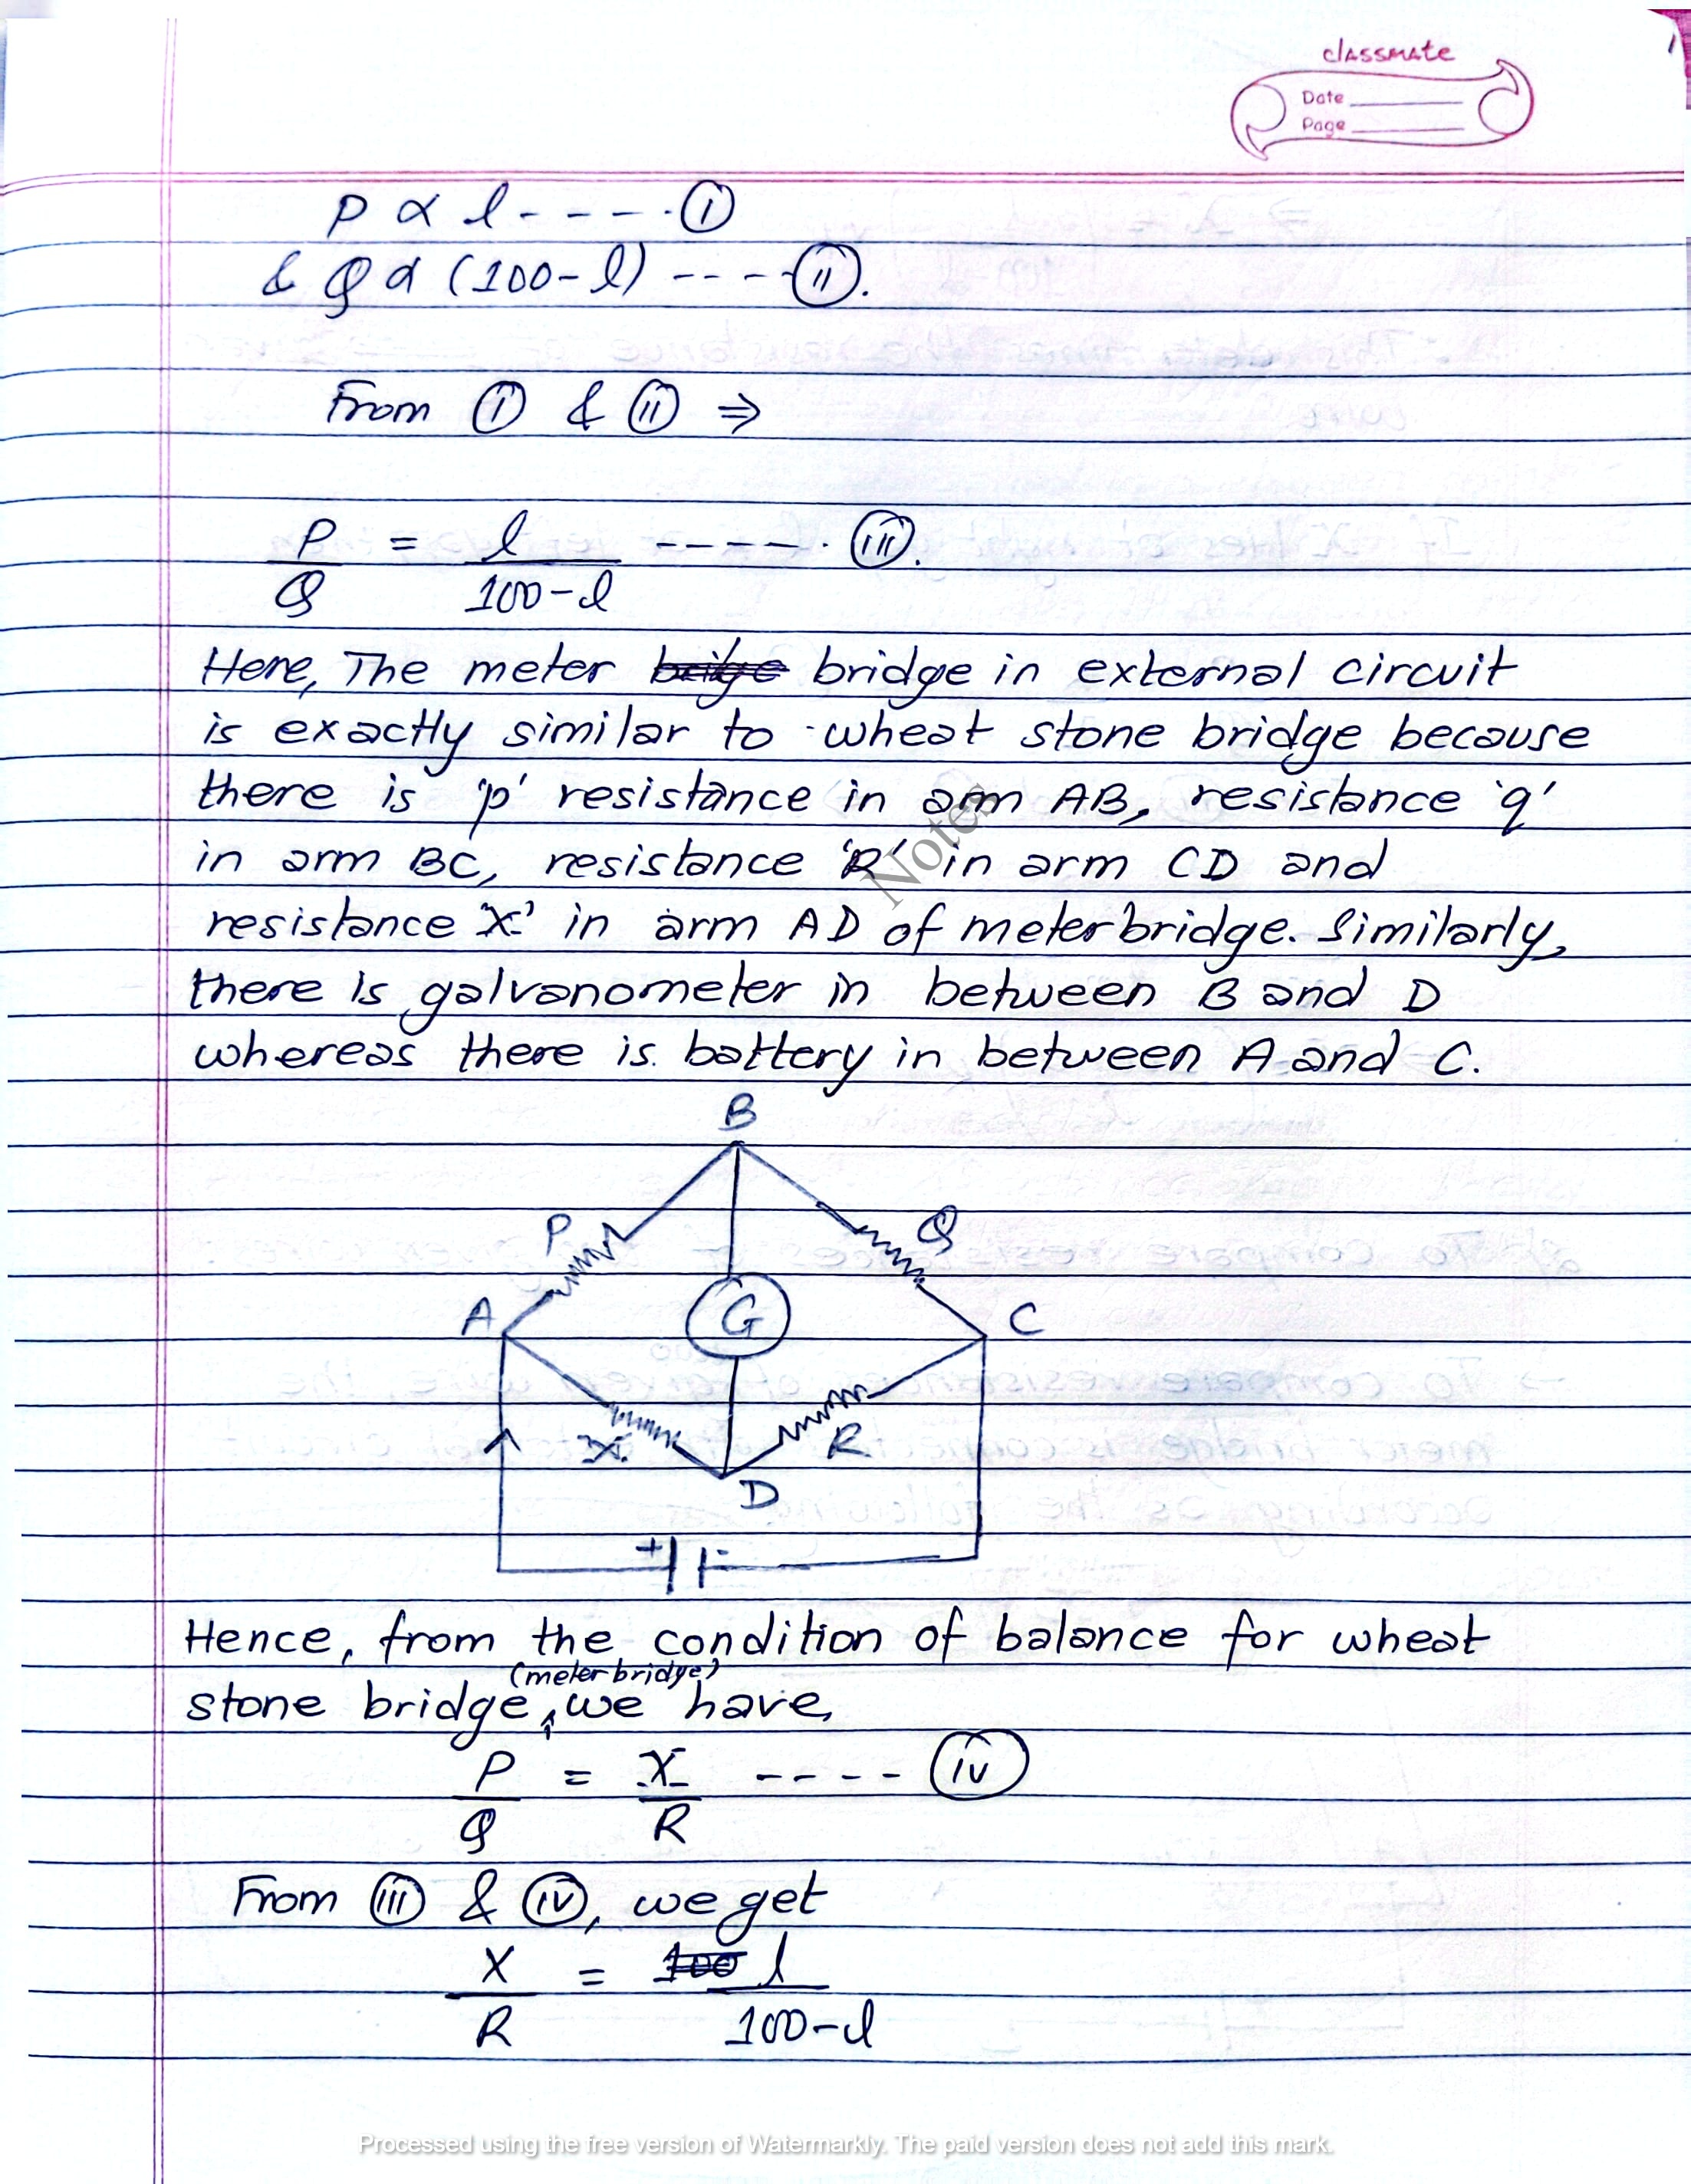 classmate
Date
Page
P ∝ l ----- (i)
& Q ∝ (100-l) ---- (ii).
From (i) & (ii) ⇒
P/Q = l/(100-l) ----- (iii).
Here, The meter bridge in external circuit
is exactly similar to wheat stone bridge because
there is 'p' resistance in arm AB, resistance 'q'
in arm BC, resistance 'R' in arm CD and
resistance 'X' in arm AD of meterbridge. Similarly,
there is galvanometer in between B and D
whereas there is battery in between A and C.
Notes
B
P
Q
A
G
C
X
R
D
+ -
Hence, from the condition of balance for wheat
stone bridge (meterbridge), we have,
P/Q = X/R ---- (iv)
From (iii) & (iv), we get
X/R = l/(100-l)
Processed using the free version of Watermarkly. The paid version does not add this mark.